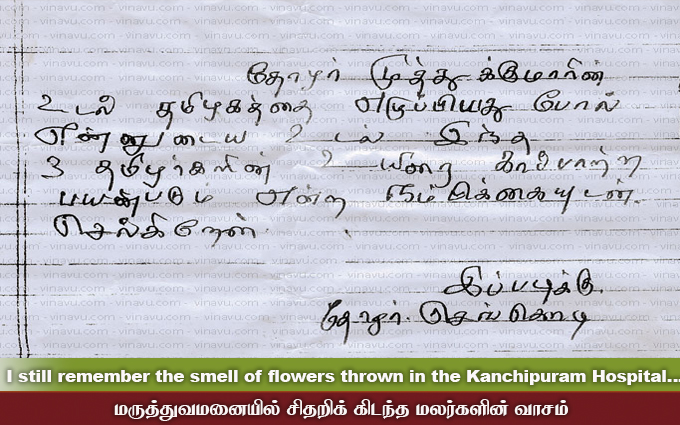 தோழர் முத்துக்குமாரின்
உடல் தமிழகத்தை எழுப்பியது போல்
என்னுடைய உடல் இந்த
3 தமிழர்களின் உயிரை காப்பாற்ற
பயன்படும் என்ற நம்பிக்கையுடன்.
செல்கிறேன்.
இப்படிக்கு.
தோழர். செங்கொடி
I still remember the smell of flowers thrown in the Kanchipuram Hospital...
மருத்துவமனையில் சிதறிக் கிடந்த மலர்களின் வாசம்